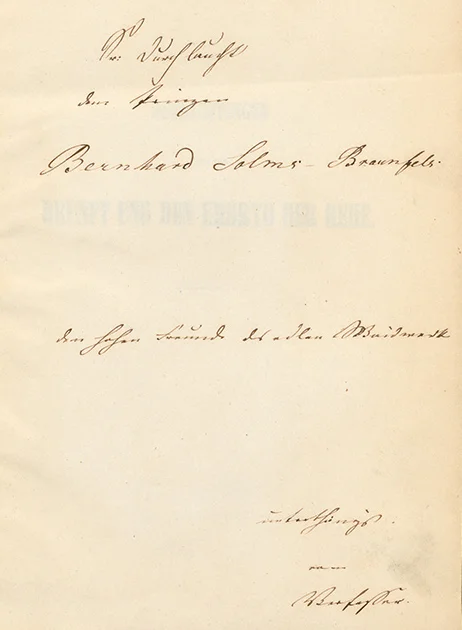 Sr: Durchlaucht
dem Prinzen
Bernhard Solms-Braunfels.
den hohen Freunde des edlen Waidwerk
unterthänigst.
vom
Verfasser.